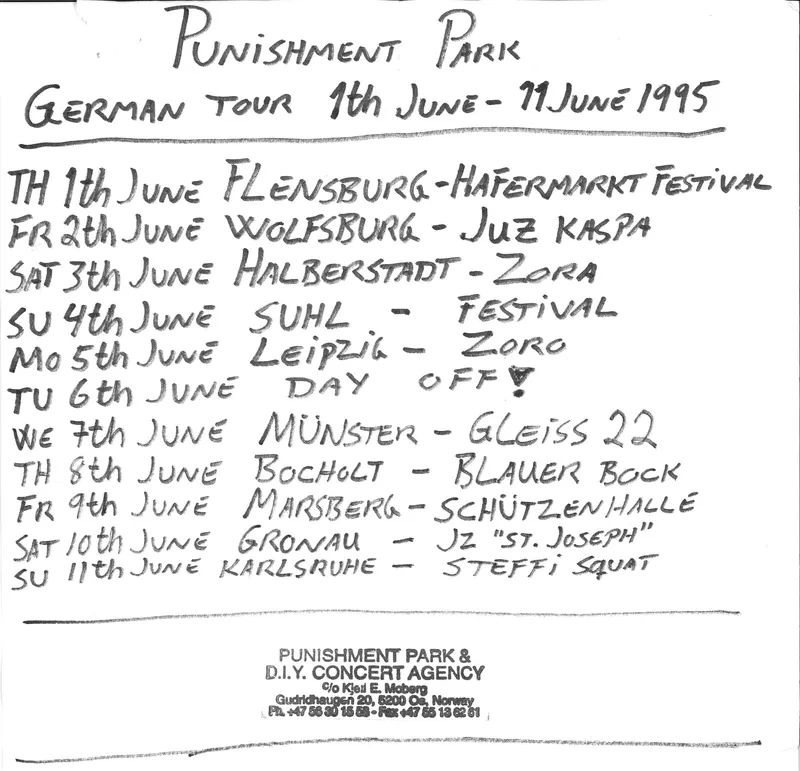 PUNiSHMENT PARK
GERMAN TOUR 1th JUNE - 11 JUNE 1995
TH 1th JUNE FLENSBURG - HAFERMARKT FESTiVAL
FR 2th JUNE WOLFSBURG - JUZ KASPA
SAT 3th JUNE HALBERSTADT - ZORA
SU 4th JUNE SUHL - FESTiVAL
MO 5th JUNE LEiPZiG - ZORO
TU 6th JUNE DAY OFF!
WE 7th JUNE MÜNSTER - GLEiSS 22
TH 8th JUNE BOCHOLT - BLAUER BOCK
FR 9th JUNE MARSBERG - SCHÜTZENHALLE
SAT 10th JUNE GRONAU - JZ "ST. JOSEPH"
SU 11th JUNE KARLSRUHE - STEFFi SQUAT
PUNISHMENT PARK &
D.I.Y. CONCERT AGENCY
c/o Kjell E. Moberg
Gudridhaugen 20, 5200 Os, Norway
Ph. +47 56 30 15 58 - Fax +47 55 13 62 61